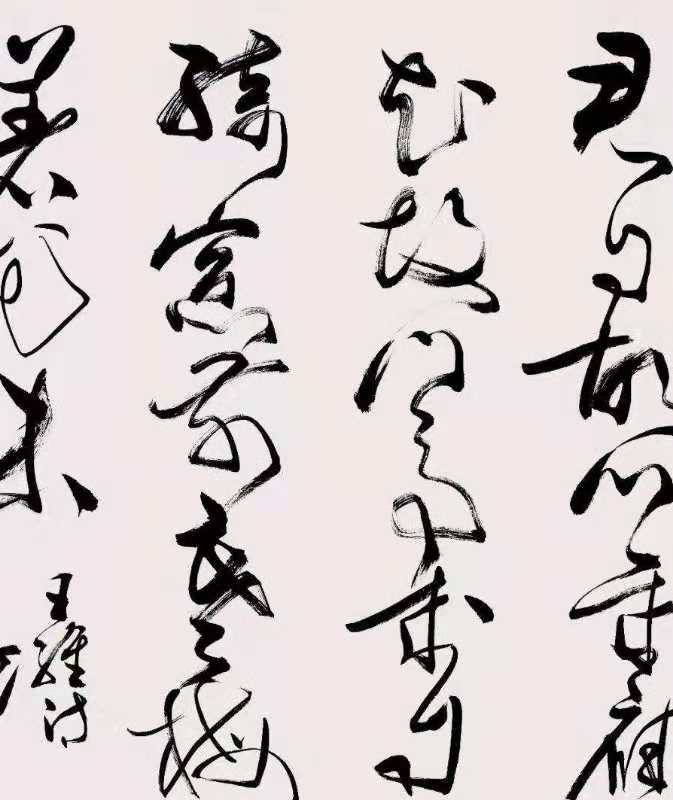 君自故鄉来應
知故鄉事来日
綺窗前寒梅
著花未
王維诗